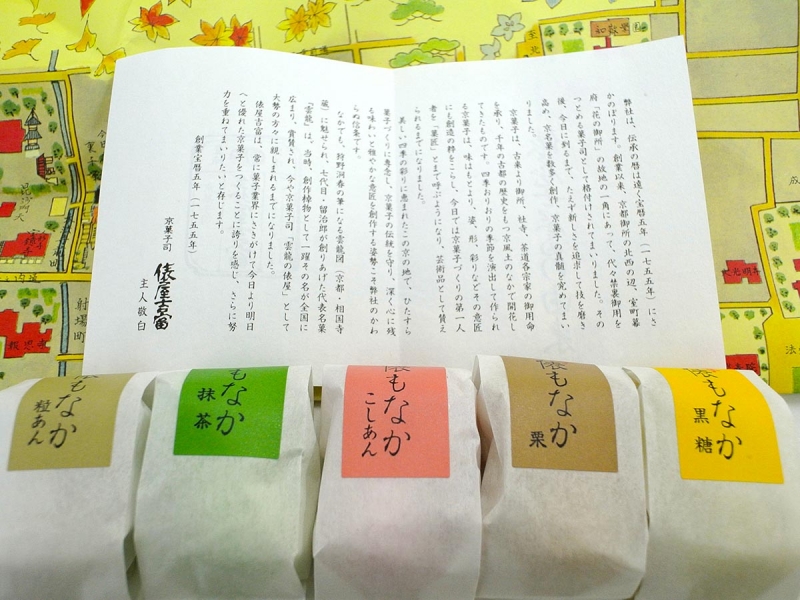 弊社は、伝承の暦は遠く宝暦五年（一七五五年）にさ
かのぼります。創業以来、京都御所の北西の辺、室町幕
府「花の御所」の故地の一角にあって、代々禁裏御用を
つとめる菓子司として格付けされてまいりました。その
後、今日に到るまで、たえず新しさを追求して技を磨き
高め、京名菓を数多く創作、京菓子の真髄を究めてまい
りました。
京菓子は、古来より御所、社寺、茶道各宗家の御用命
を承り、千年の古都の歴史をもつ京風土のなかで開花し
てきたものです。四季おりおりの季節を演出して作られ
る京菓子は、味はもとより、姿、形、彩りなどその意匠
にも創造の粋をこらし、今日では京菓子づくりの第一人
者を「菓匠」とまで呼ぶようになり、芸術品として賛え
られるまでになりました。
美しい四季の彩りに恵まれたこの京の地で、ひたすら
菓子づくりに専念し、京菓子の伝統を守り、深く心に残
る味わいと雅やかな意匠を創作する姿勢こそ弊社のかわ
らぬ信条です。
なかでも、狩野洞春の筆になる雲龍図（京都・相国寺
蔵）に魅せられ、七代目・留治郎が創りあげた代表名菓
「雲龍」は、当時、創作棹物として一躍その名が全国に
広まり、賞賛され、今や京菓子司、「雲龍の俵屋」として
大勢の方々に親しまれるまでになりました。
俵屋吉富は、常に菓子業界にさきがけて今日より明日
へと優れた京菓子をつくることに誇りを感じ、さらに努
力を重ねてまいりたいと存じます。
創業宝暦五年（一七五五年）
京菓子司
俵屋吉富
主人敬白
射場町
俵もなか
粒あん
俵もなか
抹茶
俵もなか
こしあん
俵もなか
栗
俵もなか
黒糖